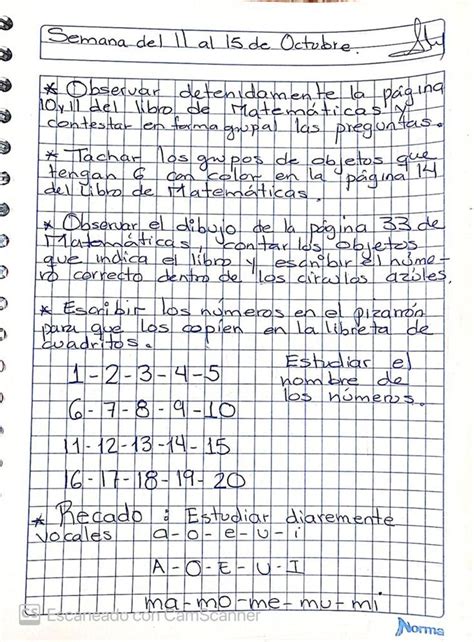 Semana del 11 al 15 de Octubre.
* Observar detenidamente la página
10 y 11 del libro de Matemáticas y
contestar en forma grupal las preguntas.
* Tachar los grupos de objetos que
tengan 6 con color en la página 14
del Libro de Matemáticas.
* Observar el dibujo de la página 33 de
Matemáticas, contar los objetos
que indica el libro y escribir el núme-
ro correcto dentro de los círculos azules.
* Escribir los números en el pizarrón
para que los copien en la libreta de
cuadritos.
Estudiar el
nombre de
los números.
1-2-3-4-5
6-7-8-9-10
11-12-13-14-15
16-17-18-19-20
* Recado: Estudiar diaremente
vocales a-o-e-u-i
A-O-E-U-I
ma-mo-me-mu-mi
CS Escaneado con CamScanner
Norma